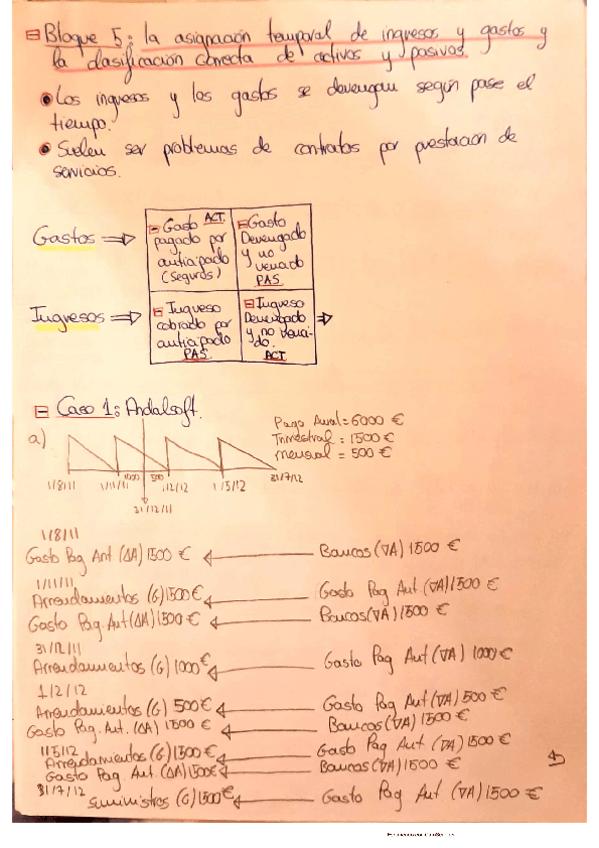 Bloque 5: la asignación temporal de ingresos y gastos y
la clasificación correcta de activos y pasivos.
Los ingresos y los gastos se devengan según pase el
tiempo.
Suelen ser problemas de contratos por prestación de
servicios.
Gastos ⇒
Gasto ACT.
pagado por
anticipado
(Seguros)
Gasto
Devengado
y no
vencido
PAS
Ingresos ⇒
Ingreso
cobrado por
anticipado
PAS.
Ingreso
Devengado
y no venci-
do.
ACT
⇒
Caso 1: Andalsoft.
a)
Pago Anual = 6000 €
Trimestral = 1500 €
Mensual = 500 €
1000 500
1/8/11 1/11/11 1/2/12 1/5/12 31/7/12
31/12/11
1/8/11
Gasto Pag Ant (ΔA) 1500 € ← Bancos (∇A) 1500 €
1/11/11
Arrendamientos (G) 1500 € ← Gasto Pag Ant (∇A) 1500 €
Gasto Pag. Ant (ΔA) 1500 € ← Bancos (∇A) 1500 €
31/12/11
Arrendamientos (G) 1000 € ← Gasto Pag Ant (∇A) 1000 €
1/2/12
Arrendamientos (G) 500 € ← Gasto Pag Ant (∇A) 500 €
Gasto Pag. Ant. (ΔA) 1500 € ← Bancos (∇A) 1500 €
1/5/12
Arrendamientos (G) 1500 € ← Gasto Pag Ant (∇A) 1500 €
Gasto Pag Ant (ΔA) 1500 € ← Bancos (∇A) 1500 €
31/7/12
Suministros (G) 1500 € ← Gasto Pag Ant (∇A) 1500 €